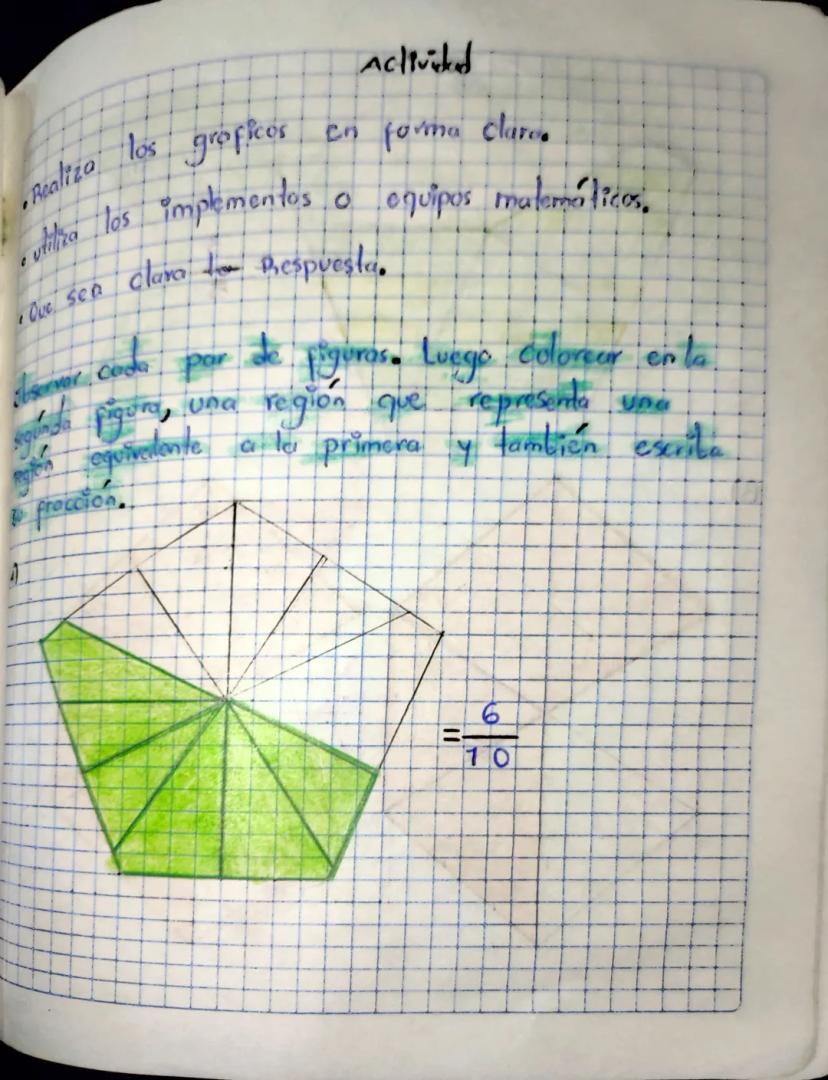 Actividad
• Realiza los graficos en forma clara.
• utiliza los implementos o equipos matemáticos.
• Que sea clara la Respuesta.
Observar cada par de figuras. Luego colorear en la
segúnda figura, una región que representa una
región equivalente a la primera y también escriba
su fracción.
= 6
10